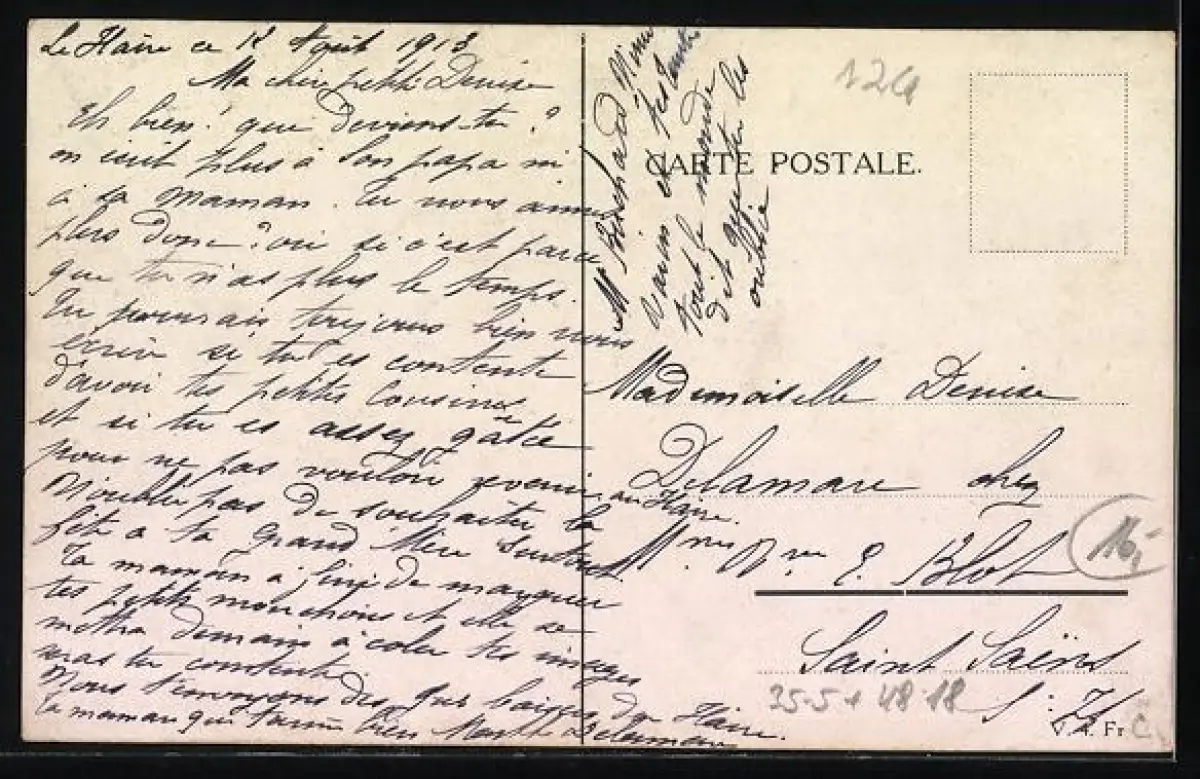 Le Havre ce 12 Août 1913
Ma chère petite Denise
Eh bien! que deviens-tu?
on écrit plus à son papa ni
à sa maman. Tu nous aime
plus donc? ou si c'est parce
que tu n'as plus le temps.
Tu pourrais toujours bien nous
écrire si tu es contente
d'avoir tes petites Cousines
et si tu es assez gâtée
pour ne pas vouloir revenir au Havre.
N'oublie pas de souhaiter la
fête à ta Grand Mère surtout.
Ta maman a fini de marquer
tes petits mouchoirs et elle se
mettra demain à coler tes images
seras tu contente
Nous t'envoyons des gros baisers du Havre.
ta maman qui t'aime bien Marthe Delamare
Mr
et
tout le monde
dit
les
oublie
124
CARTE POSTALE.
Mademoiselle Denise
Delamare chez
Mme Vve E. Blot
Saint Saëns
S. I
16,
25-5+ 48 18
Fr